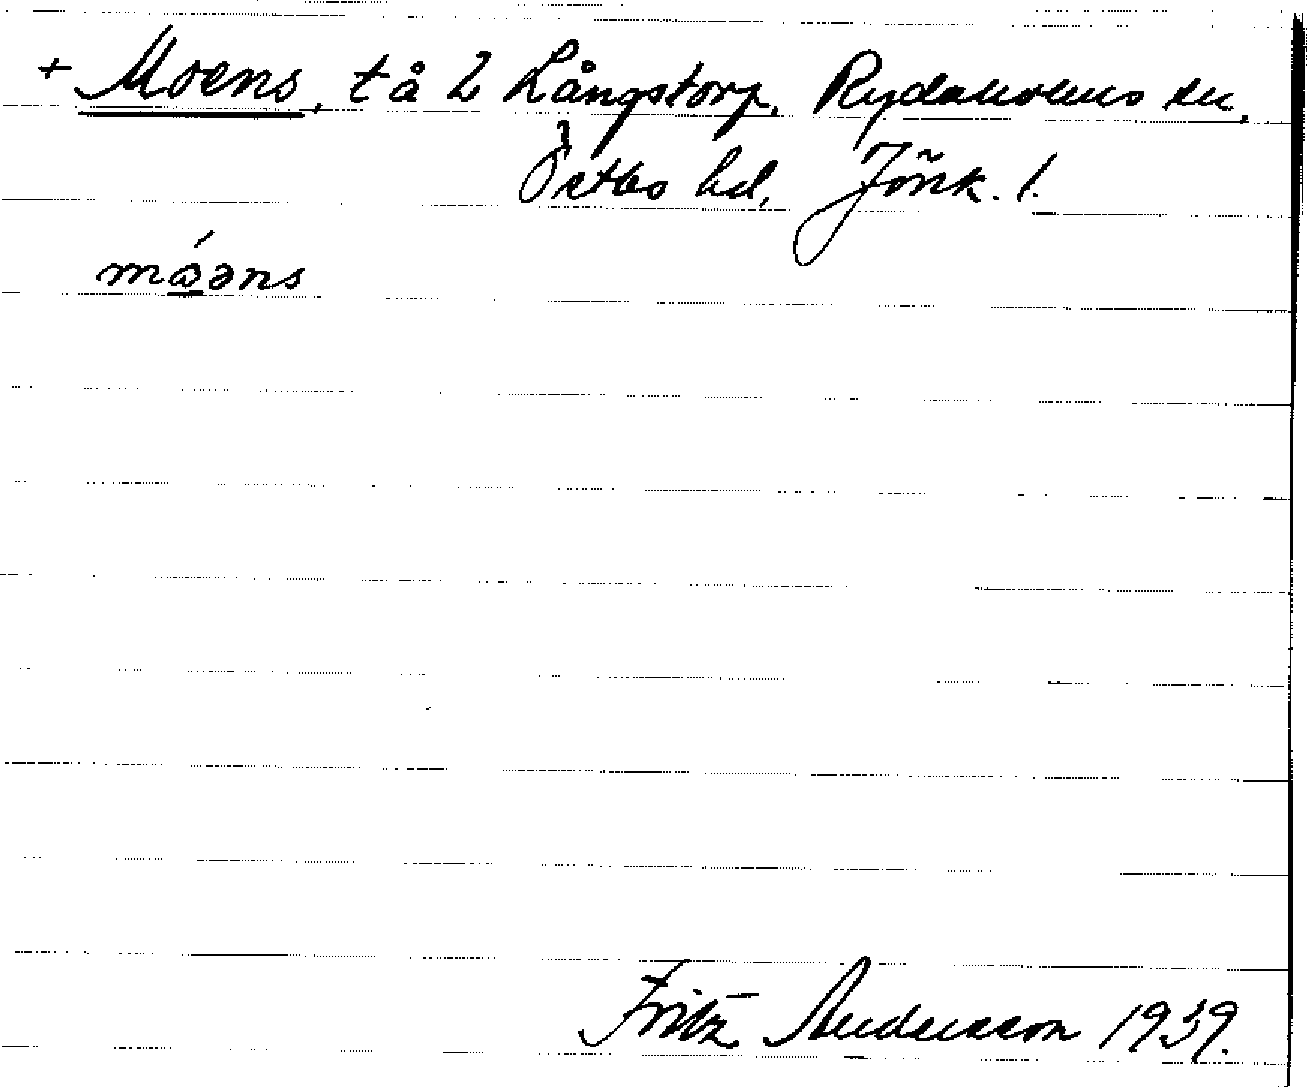 + Moens, t å 2 Långstorp, Rydaholms sn,
Östbo hd, Jönk. l.
mǻəns
Fritz Andersson 1939.